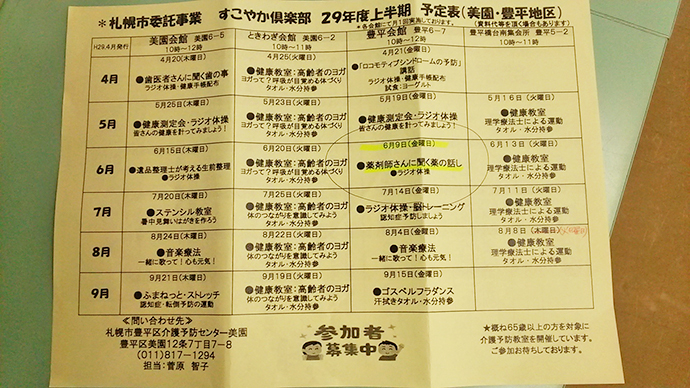 ＊札幌市委託事業　すこやか倶楽部　29年度上半期　予定表(美園・豊平地区)
＊各会館にて月1回実施しております。
(資料代等を頂く場合もあります)
H29.4月発行
美園会館 美園6-5
10時～12時
ときわぎ会館 美園6-2
10時～11時
豊平会館 豊平6-7
10時～12時
豊平橋台南集会所 豊平5-2
10時～11時
4月
4月20日(木曜日)
●歯医者さんに聞く歯の事
ラジオ体操・健康手帳配布
4月25日(火曜日)
●健康教室:高齢者のヨガ
ヨガって？呼吸が目覚める体づくり
タオル・水分持参
4月21日(金曜日)
●「ロコモティブシンドロームの予防」
講話
ラジオ体操・健康手帳配布
試食:ヨーグルト
5月
5月25日(木曜日)
●健康測定会・ラジオ体操
皆さんの健康を計ってみましょう！
5月23日(火曜日)
●健康教室:高齢者のヨガ
ヨガって？呼吸が目覚める体づくり
タオル・水分持参
5月19日(金曜日)
●健康測定会・ラジオ体操
皆さんの健康を計ってみましょう！
5月16日(火曜日)
●健康教室
理学療法士による運動
タオル・水分持参
6月
6月15日(木曜日)
●遺品整理士が考える生前整理
●ラジオ体操
6月20日(火曜日)
●健康教室:高齢者のヨガ
ヨガって？呼吸が目覚める体づくり
タオル・水分持参
6月9日(金曜日)
●薬剤師さんに聞く薬の話し
●ラジオ体操
6月13日(火曜日)
●健康教室
理学療法士による運動
タオル・水分持参
7月
7月20日(木曜日)
●ステンシル教室
暑中見舞いはがきを作ろう
7月18日(火曜日)
●健康教室:高齢者のヨガ
体のつながりを意識してみよう
タオル・水分持参
7月14日(金曜日)
●ラジオ体操・脳トレーニング
認知症予防しましょう
7月11日(火曜日)
●健康教室
理学療法士による運動
タオル・水分持参
8月
8月24日(木曜日)
●音楽療法
一緒に歌って！心も元気！
8月22日(火曜日)
●健康教室:高齢者のヨガ
体のつながりを意識してみよう
タオル・水分持参
8月4日(金曜日)
●音楽療法
一緒に歌って！心も元気！
8月8日(木曜日)
●健康教室
理学療法士による運動
タオル・水分持参
9月
9月21日(木曜日)
●ふまねっと・ストレッチ
認知症・転倒予防の運動
9月19日(火曜日)
●健康教室:高齢者のヨガ
体のつながりを意識してみよう
タオル・水分持参
9月15日(金曜日)
●ゴスペルフラダンス
汗拭きタオル・水分持参
≪問い合わせ先≫
札幌市豊平区介護予防センター美園
豊平区美園12条7丁目7-8
(011)817-1294
担当:菅原 智子
参加者
募集中
★概ね65歳以上の方を対象に
介護予防教室を開催しています。
ご参加お待ちしております。